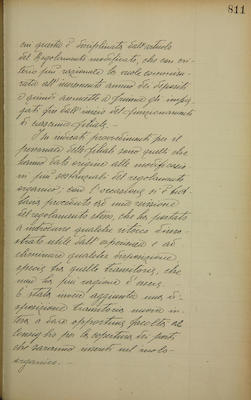 811
cui questa è disciplinata dall'articolo
del Regolamento modificato, che con cri-
terio più razionale la vuole commisu-
rata all'incremento annuo dei depositi
e quindi ammette a fruirne gli impie-
gati fin dall'inizio del funzionamento
di ciascuna filiale. -
I su indicati provvedimenti per il
personale delle filiali sono quelli che
hanno dato origine alle modificazio-
ni più sostanziali del regolamento
organico; con l'occasione si è
procedere ad una revisione
del regolamento stesso, che ha portato
a introdurre qualche ritocco dimo-
strato utile dall'esperienza e ad
eliminare qualche disposizione
specie tra quelle transitorie, che
non ha più ragione d'essere.
È stata invece aggiunta una di-
sposizione transitoria nuova in-
tesa a dare opportuna facoltà al
Consiglio per la copertura dei posti
che saranno inseriti nel ruolo
organico. -